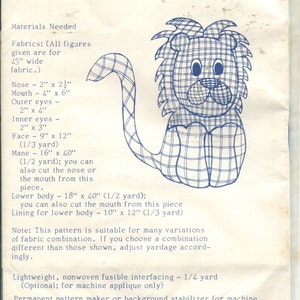 Materials Needed
Fabrics: (All figures
given are for
45" wide
fabric.)
Nose - 2" x 2½"
Mouth - 4" x 6"
Outer eyes -
2" x 4"
Inner eyes -
2" x 3"
Face - 9" x 12"
(1/3 yard)
Mane - 16" x 40"
(1/2 yard); you can
also cut the nose or
the mouth from this
piece.
Lower body - 18" x 40" (1/2 yard);
you can also cut the mouth from this piece
Lining for lower body - 10" x 12" (1/3 yard)
Note: This pattern is suitable for many variations
of fabric combination. If you choose a combination
different than those shown, adjust yardage accord-
ingly.
Lightweight, nonwoven fusible interfacing - 1/4 yard
(Optional; for machine applique only)
Permanent pattern maker or background stabilizer for machine